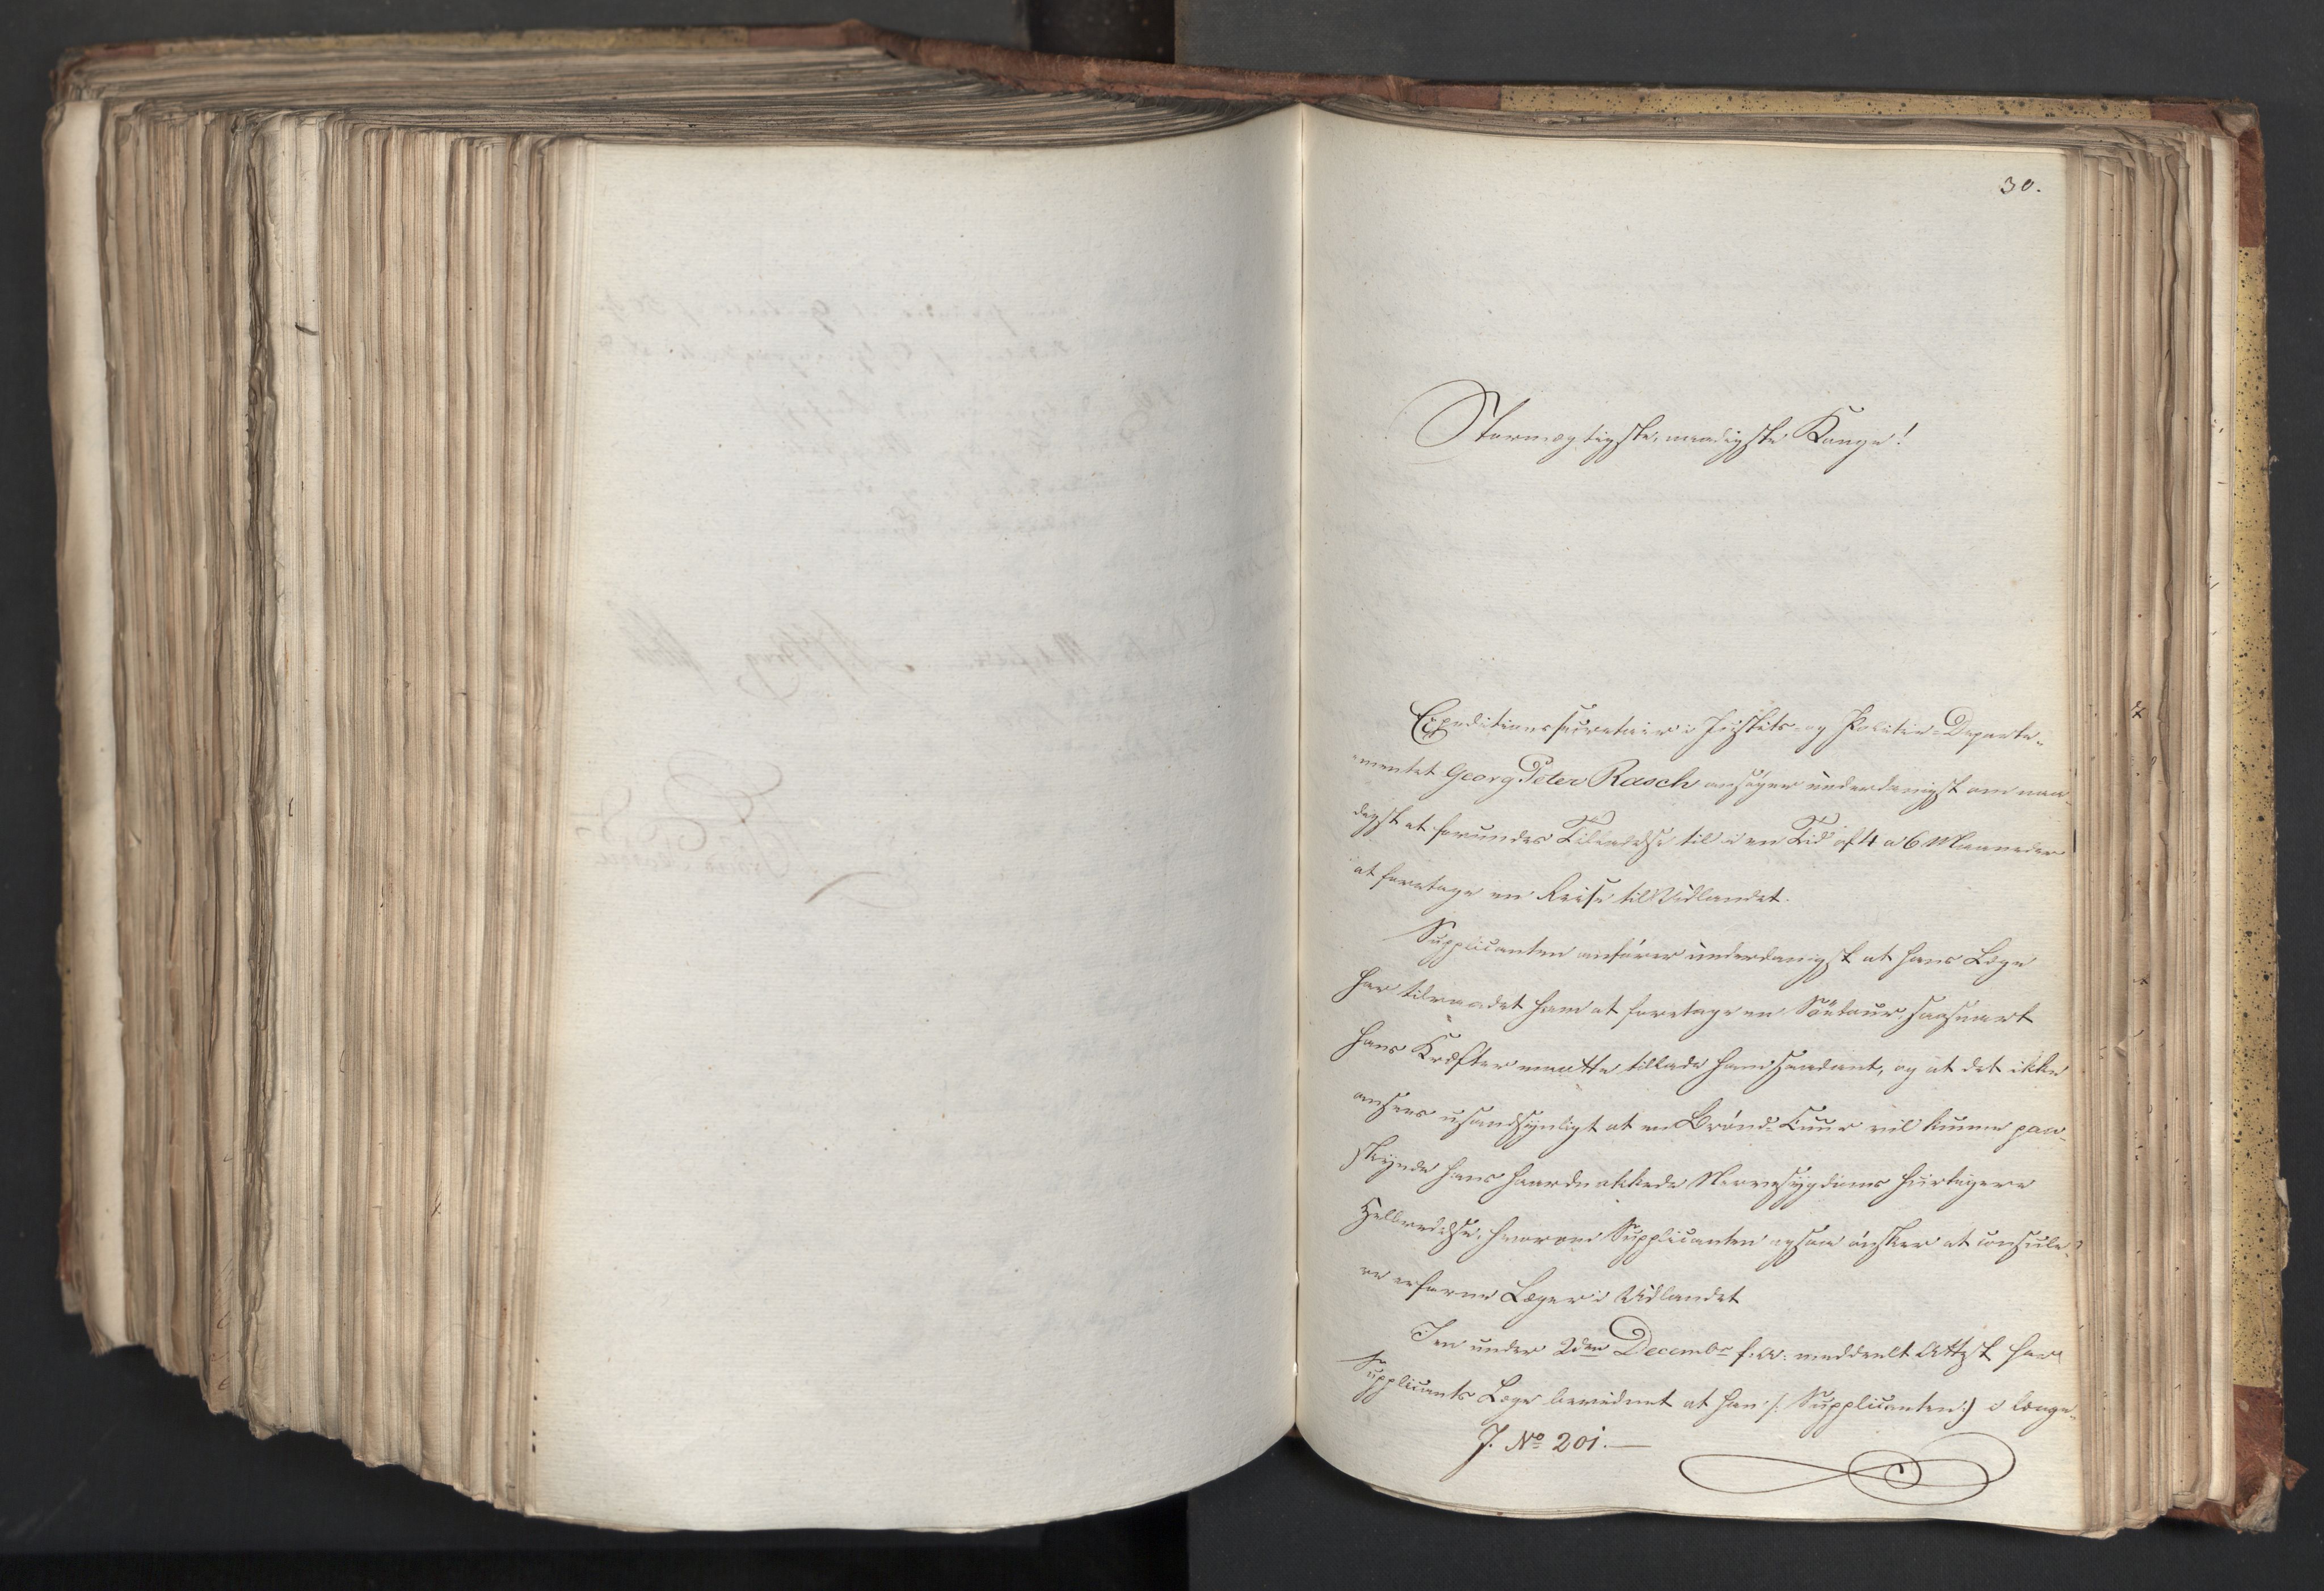 30.
Stormægtigste, naadigste Konge!
Expeditionssecretair i Justits- og Politie-Departe-
mentet Georg Peter Rasch ansøger underdanigst om naa-
digst at forundes Tilladelse til i en Tid af 4 a 6 Maaneder
at foretage en Reise til Udlandet.
Supplicanten anfører underdanigst at hans Læge
har tilraadet ham at foretage en Søetour, saasnart
hans Kræfter maatte tillade ham saadant, og at det ikke
ansees usandsynligt at en Brønd-Cuur vil kunne paa-
skynde hans haardnakkede Nervesygdoms hurtigere
Helbredelse, hvorom Supplicanten ogsaa ønsker at consule-
re erfarne Læger i Udlandet
I en under 2den Decembr f: A: meddeelt Attest har
Supplicants Læge bevidnet at han /: Supplicanten :/ i længe-
J. No 201.